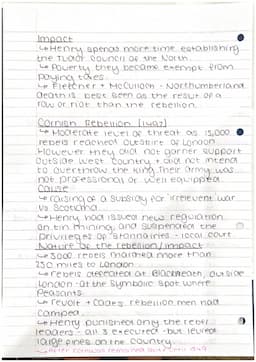 Impact
↳ Henry spends more time establishing
the Tudor council of the North.
↳ Poverty they became exempt from
paying taxes.
↳ Fletcher + McCulloch - Northumberland
death is best seen as the result of a
row or riot than the rebellion.
Cornish Rebellion (1497)
↳ Moderate level of threat as 15,000
rebels reached outskirts of London.
However they did not garner support
outside West Country + did not intend
to overthrow the king. Their army was
not professional or well equipped.
Cause
↳ raising of a subsidy for irrelevent war
vs Scotland.
↳ Henry had issued new regulation
on tin mining, and suspended the
privileges of stannaries - local court
Nature of the rebellion/impact
↳ 3000 rebels marched more than
250 miles to London.
↳ rebels defeated at Blackheath, outside
London - at the symbolic spot where
peasants
revolt + Cades rebellion men had
camped.
↳ Henry punished only the rebel
leaders - all 3 executed - but levied
large fines on the country.
↳ After Cornwall remained